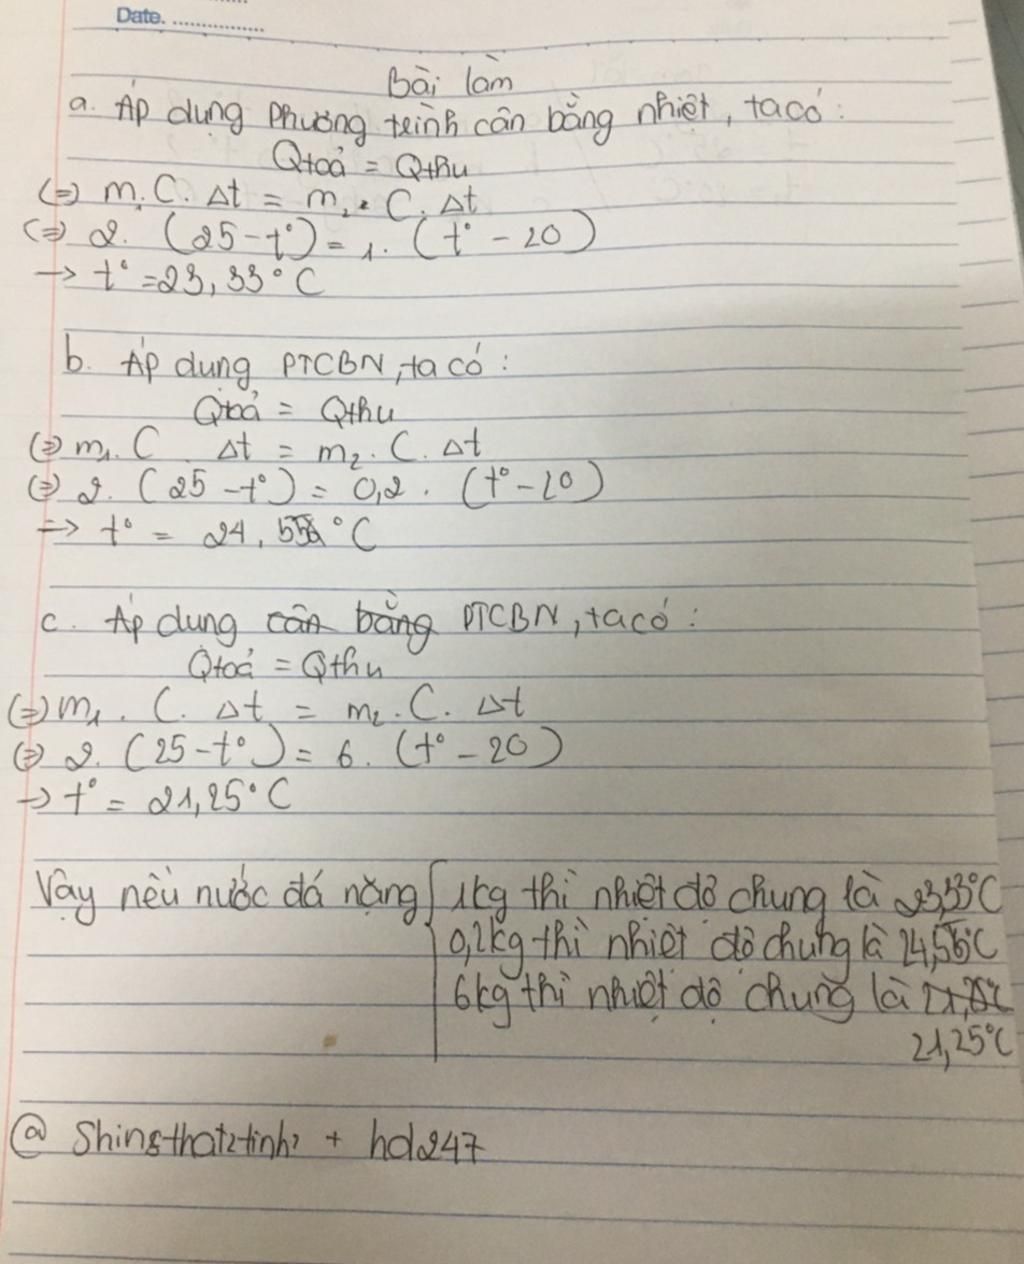 Date. ................
Bài làm
a. Áp dụng phương trình cân bằng nhiệt, ta có:
Qtoả = Qthu
(=) m. C. Δt = m₂. C. Δt
(=) 2. (25-t°) = 1. (t° - 20)
→ t° = 23,33°C
b. Áp dụng PTCBN, ta có:
Qtoả = Qthu
(=) m₁. C Δt = m₂. C. Δt
(=) 2. (25 -t°) = 0,2. (t° - 20)
=> t° = 24,55 °C
c. Áp dung cân bằng PTCBN, ta có:
Qtoả = Qthu
(=) m₁. C. Δt = m₂. C. Δt
(=) 2. (25-t°) = 6. (t° - 20)
-> t° = 21,25°C
Vậy nếu nước đá nặng 1kg thì nhiệt độ chung là 23,33°C
0,2kg thì nhiệt độ chung là 24,55°C
6kg thì nhiệt độ chung là
21,25°C
@ + hd247